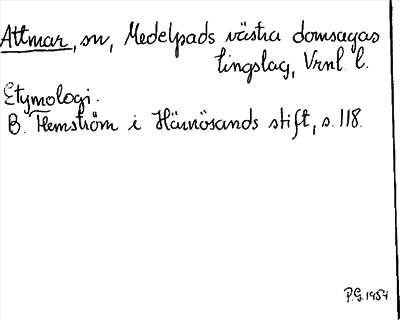 Attmar, sn, Medelpads västra domsagas
tingslag, Vrnl. l.
Etymologi.
B. Hemström i Härnösands stift, s. 118.
P.G. 1954.